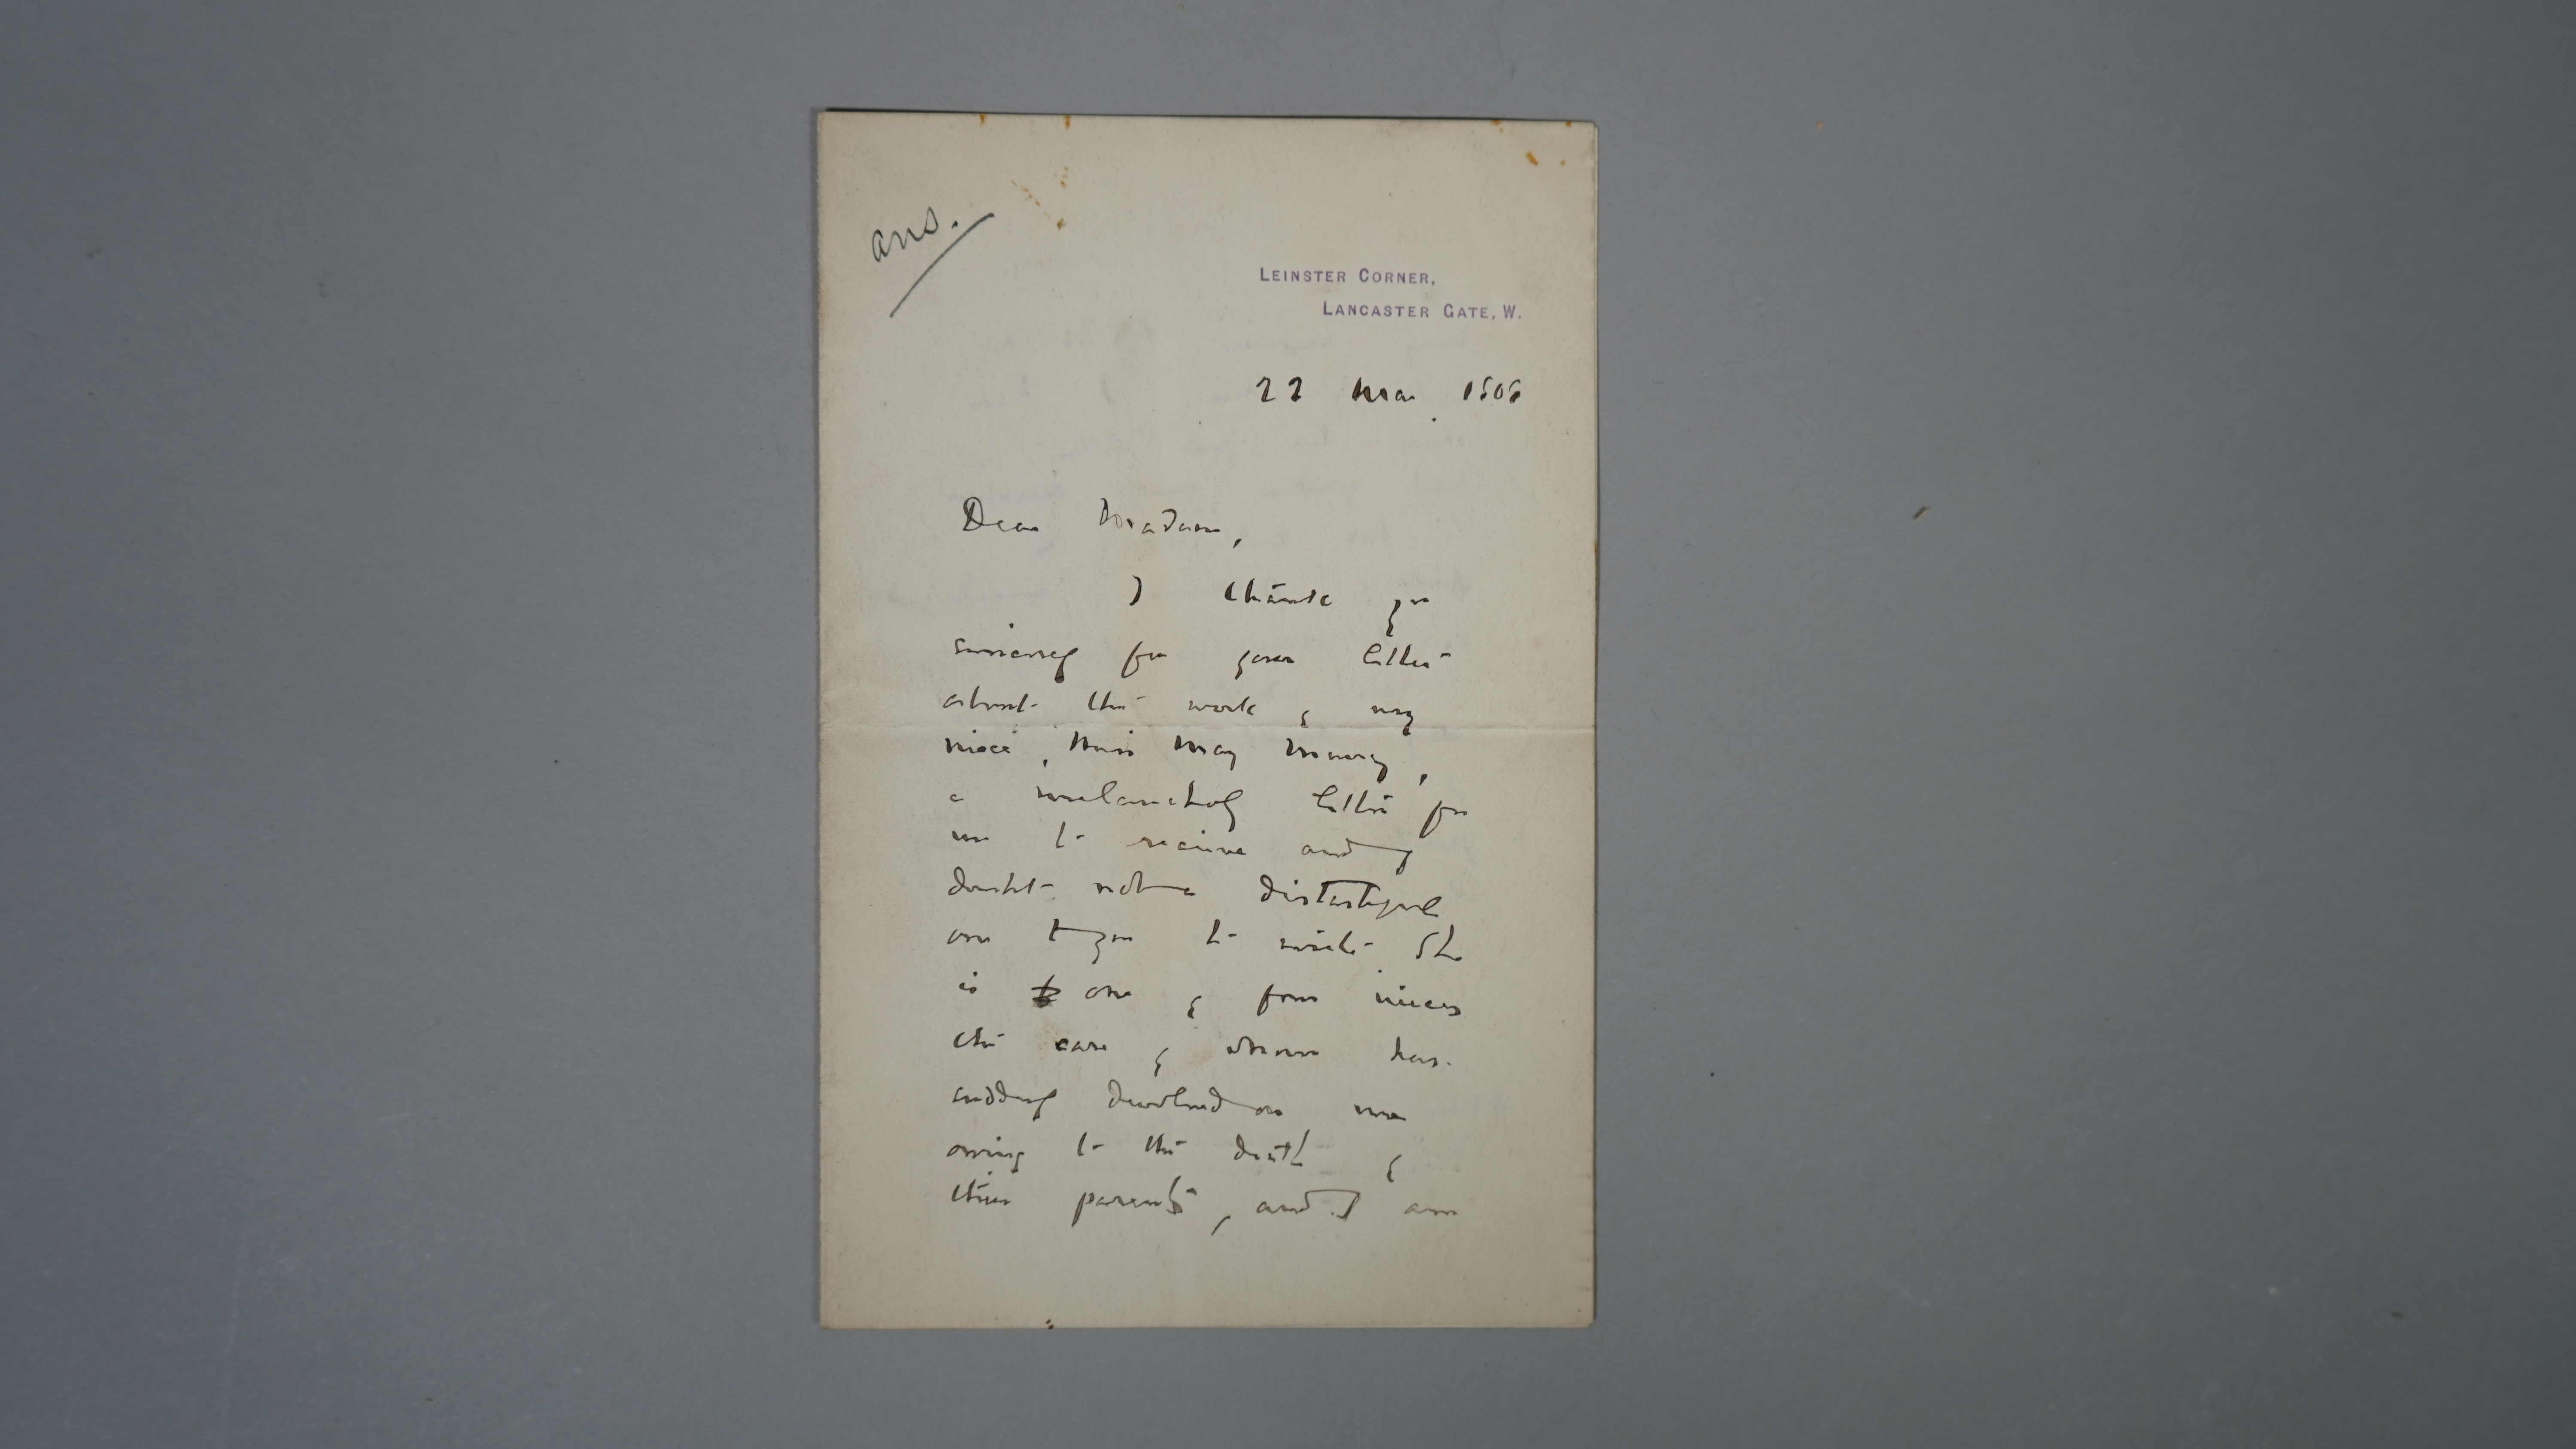 ans.
LEINSTER CORNER,
LANCASTER GATE, W.
22 Mar 1906
Dear Madam,
I thank you
sincerely for your letter
about the work of my
niece, Miss May Murray,
a melancholy letter for
me to receive and I
doubt not a distasteful
one to you to write. She
is one of four nieces
the care of whom has
suddenly devolved on me
owing to the death of
their parents, and I am